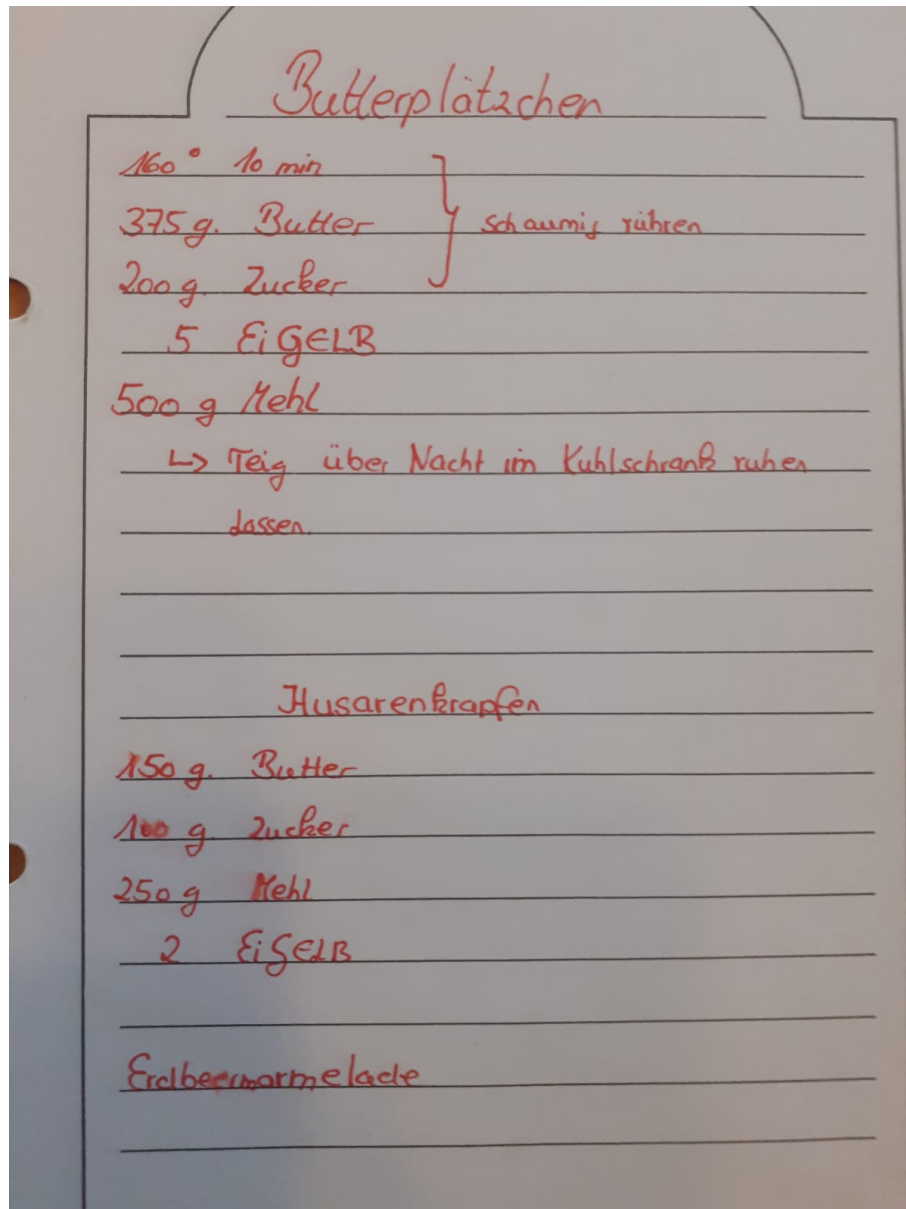 Butterplätzchen
160° 10 min
375 g. Butter schaumig rühren
200 g. Zucker
5 EiGELB
500 g Mehl
↳ Teig über Nacht im Kuhlschrank ruhen
lassen.
Husarenkrapfen
150 g. Butter
100 g. Zucker
250 g Mehl
2 EiGELB
Erdbeermarmelade